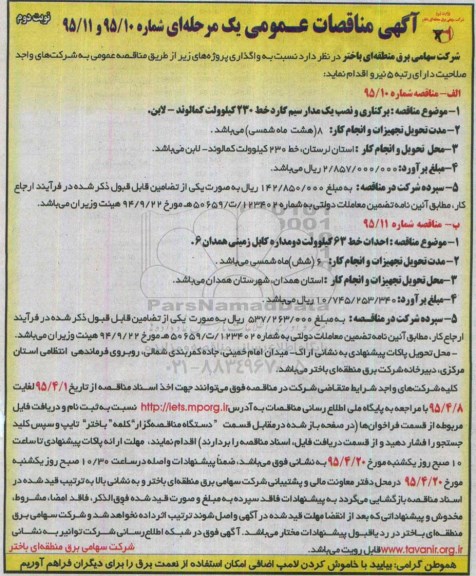 نوبت دوم
آگهی مناقصات عـــمومی یک مرحله‌ای شماره ۹۵/۱۰ و ۹۵/۱۱
شرکت سهامی برق منطقه‌ای باختر در نظر دارد نسبت به واگذاری پروژه‌های زیر از طریق مناقصه عمومی به شرکت‌های واجد
صلاحیت دارای رتبه ۵ نیرو اقدام نماید:
الف- مناقصه شماره ۹۵/۱۰
۱-موضوع مناقصه : برکناری و نصب یک مدار سیم گارد خط ۲۳۰ کیلوولت کمالوند - لابن.
۲-مدت تحویل تجهیزات و انجام کار: ۸(هشت ماه شمسی) می‌باشد .
۳-محل تحویل و انجام کار : استان لرستان، خط ۲۳۰ کیلوولت کمالوند- لابن می‌باشد.
۴-مبلغ برآورد: ۲/۸۵۷/۰۰۰/۰۰۰ ریال می‌باشد.
۵-سپرده شرکت در مناقصه : به مبلغ ۱۴۲/۸۵۰/۰۰۰ ریال به صورت یکی از تضامین قابل قبول ذکر شده در فرآیند ارجاع
کار، مطابق آئین نامه تضمین معاملات دولتی به شماره ۱۲۳۴۰۲/ت۵۰۶۵۹ هـ مورخ ۹۴/۹/۲۲ هیئت وزیران می‌باشد.
ب- مناقصه شماره ۹۵/۱۱
۱-موضوع مناقصه : احداث خط ۶۳ کیلوولت دومداره کابل زمینی همدان ۶.
۲-مدت تحویل تجهیزات و انجام کار: ۶ (شش) ماه شمسی می‌باشد .
۳-محل تحویل و انجام کار : استان همدان، شهرستان همدان می‌باشد.
۴-مبلغ برآورد: ۱۰/۷۴۵/۲۵۳/۳۴۰ ریال می‌باشد.
۵-سپرده شرکت در مناقصــه : به مبلغ ۵۳۷/۲۶۳/۰۰۰ ریال به صورت یکی از تضامین قابل قبول ذکر شده در فرآیند
ارجاع کار، مطابق آئین نامه تضمین معاملات دولتی به شماره ۱۲۳۴۰۲/ت۵۰۶۵۹ هـ مورخ ۹۴/۹/۲۲ هیئت وزیران می‌باشد.
- محل تحویل پاکات پیشنهادی به نشانی اراک- میدان امام خمینی، جاده کمربندی شمالی، روبروی فرماندهی انتظامی استان
مرکزی، دبیرخانه شرکت برق منطقه‌ای باختر می‌باشد.
کلیه شرکت‌های واجد شرایط متقاضی شرکت در مناقصه فوق می‌توانند جهت اخذ اسناد مناقصه از تاریخ ۹۵/۴/۱ لغایت
۹۵/۴/۸ با مراجعه به پایگاه ملی اطلاع رسانی مناقصات به آدرس http://iets.mporg.ir نسبت به ثبت نام و دریافت فایل
مربوطه از قسمت فراخوان‌ها (در صفحه باز شده در مقابل قسمت "دستگاه مناقصه‌گزار" کلمه "باختر" تایپ و سپس کلید
جستجو را فشار دهید و از قسمت دریافت فایل، اسناد مناقصه را بردارند) اقدام نمایند، مهلت ارائه پاکات پیشنهادی تا ساعت
۱۰ صبح روز یکشنبه مورخ ۹۵/۴/۲۰ به نشانی فوق می‌باشد، ضمناً پیشنهادات واصله در ساعت ۱۰/۳۰ صبح روز یکشنبه
مورخ ۹۵/۴/۲۰ در محل دفتر معاونت مالی و پشتیبانی شرکت سهامی برق منطقه‌ای باختر و به نشانی بالا به ترتیب قید شده در
اسناد مناقصه بازگشایی می‌گردد به پیشنهادات فاقد سپرده به مبلغ و صورت قید شده فوق‌الذکر، فاقد امضا، مشروط،
مخدوش و پیشنهاداتی که بعد از انقضا مهلت قید شده در آگهی واصل شوند ترتیب اثر داده نخواهد شد و شرکت سهامی برق
منطقه‌ای باختر در رد یا قبول پیشنهادات مختار می‌باشد. آگهی فوق در شبکه اطلاع رسانی شرکت توانیر به نشانی
www.tavanir.org.ir قابل رویت می‌باشد. شرکت سهامی برق منطقه‌ای باختر
هموطن گرامی: بیایید با خاموش کردن لامپ اضافی امکان استفاده از نعمت برق را برای دیگران فراهم آوریم
ParsNamadData
۰۲۱-۸۸۳۴۹۶۷۰